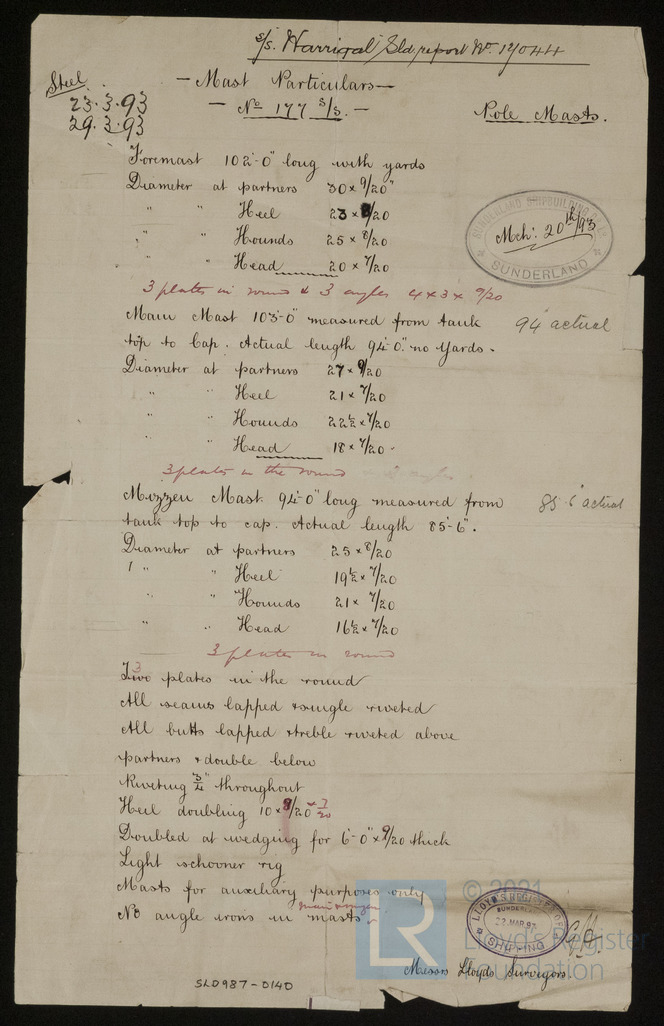 s/s. "Warrigal" Sld. report No. 17044
Steel
23.3.93
29.3.93
— Mast Particulars —
— No 177 s/s. —
Pole Masts.
SUNDERLAND SHIPBUILDING
Mch: 20th/93
SUNDERLAND
Foremast 102'-0" long with yards
Diameter at partners 30 x 9/20"
" " Heel 23 x 8/20
" " Hounds 25 x 8/20
" " Head 20 x 7/20
3 plates in round & 3 angles 4 x 3 x 9/20
Main Mast 103'-0" measured from tank
94' actual
top to Cap. Actual length 94'-0". no Yards.
Diameter at partners 27 x 9/20
" " Heel 21 x 7/20
" " Hounds 22½ x 7/20
" " Head 18 x 7/20
3 plates in the round
Mizzen Mast. 94'-0" long measured from
85'-6" actual
tank top to cap. Actual length 85'-6".
Diameter at partners 25 x 8/20
" " Heel 19½ x 7/20
" " Hounds 21 x 7/20
" " Head 16½ x 7/20
3 plates in round
3
Two plates in the round
All seams lapped & single riveted
All butts lapped & treble riveted above
partners & double below
Riveting ¾" throughout
Heel doubling 10 x 8/20 x 7/20
Doubled at wedging for 6'-0" x 9/20 thick
Light schooner rig
Masts for auxiliary purposes only
main & mizzen
No angle irons in masts
© 2021
LR
Lloyd's Register
Foundation
LLOYD'S REGISTER OF
SUNDERLAND
23 MAR 93
SHIPPING
Messrs Lloyds Surveyors.
SLD987-0140